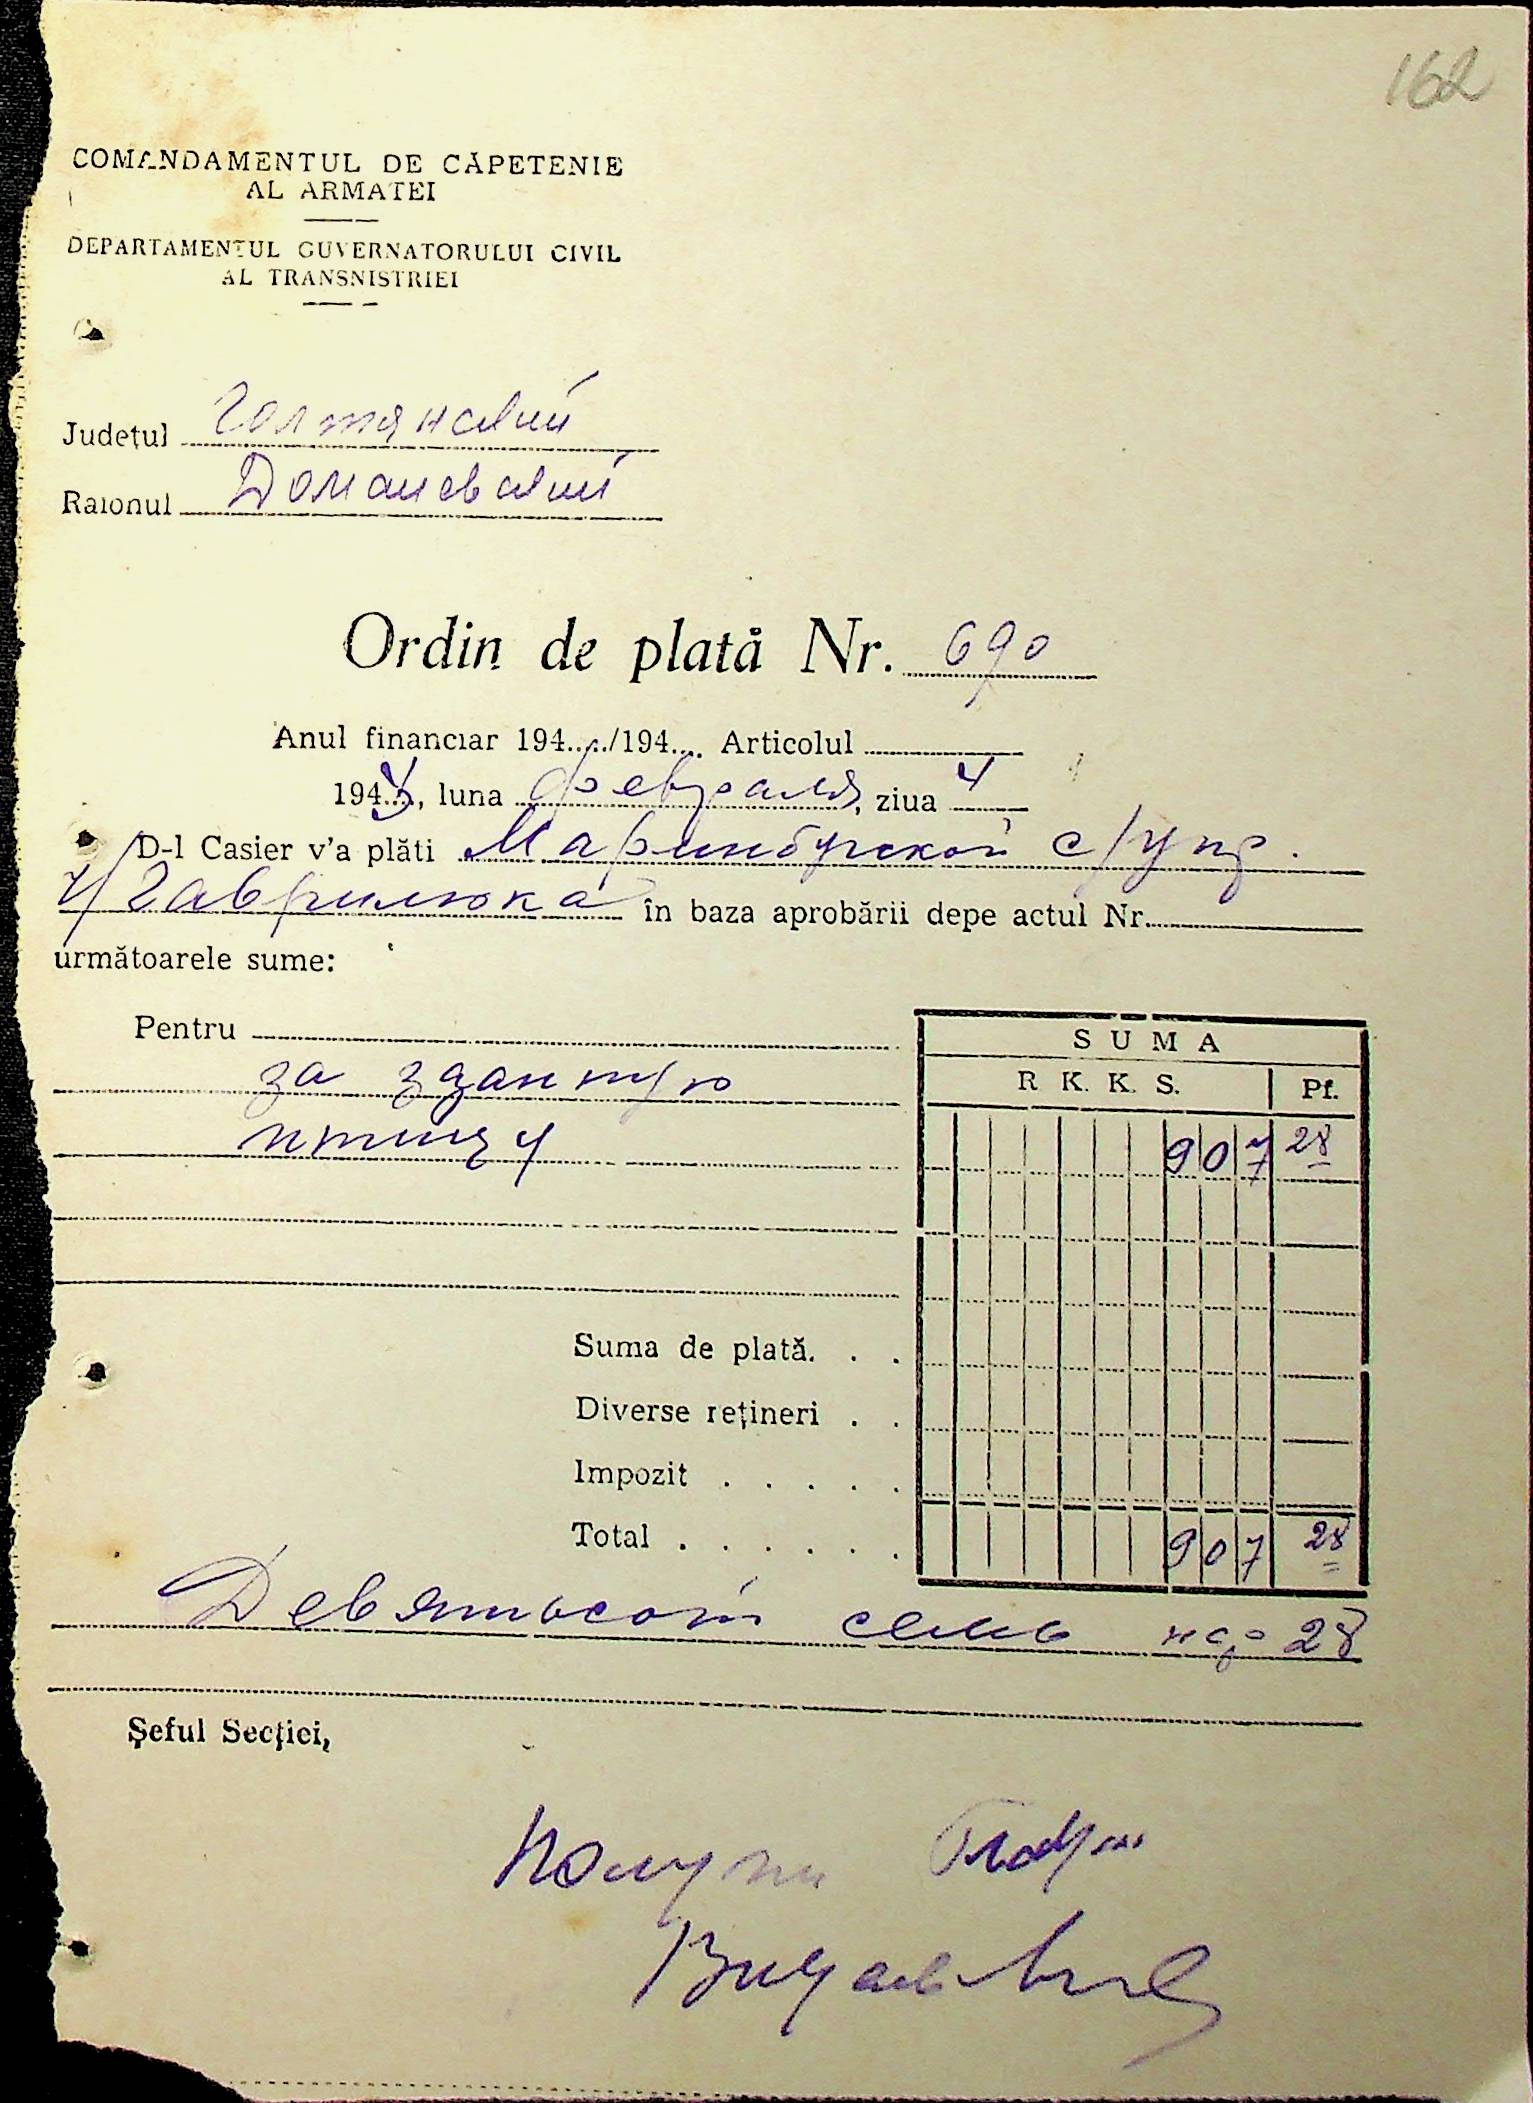 162
COMANDAMENTUL DE CĂPETENIE
AL ARMATEI
DEPARTAMENTUL GUVERNATORULUI CIVIL
AL TRANSNISTRIEI
Județul Голтянский
Raionul Доманевский
Ordin de plată Nr. 690
Anul financiar 194...../194.... Articolul
1943, luna февраля, ziua 4
D-l Casier v'a plăti Маринбургской с/упр.
ч/ Гаврилюка în baza aprobării depe actul Nr.
următoarele sume:
Pentru
за зданную
птицу
S U M A
R K. K. S. Pf.
907 28
Suma de plată. . .
Diverse rețineri . .
Impozit . . . . .
Total . . . . . . 907 28
Девятьсот семь 28
Șeful Secției,